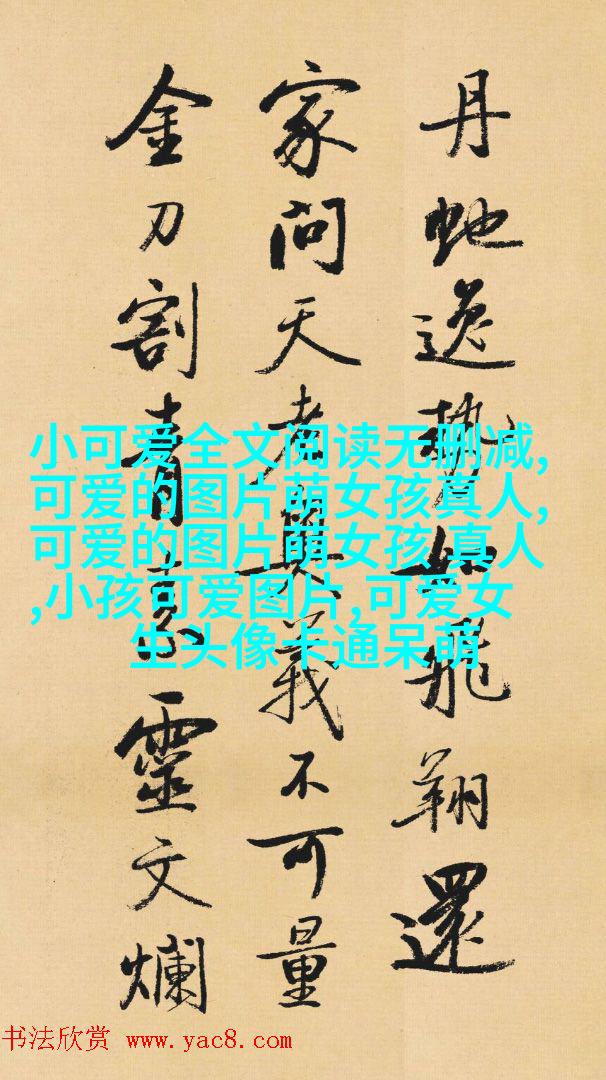 丹虵逸勢如飛翔還
家問天老奧義不可量
金刀割青素靈文爛
小可爱全文阅读无删减,
可爱的图片萌女孩真人,
可爱的图片萌女孩 真人
,小孩可爱图片,可爱女
生头像卡通呆萌
书法欣赏 www.yac8.com